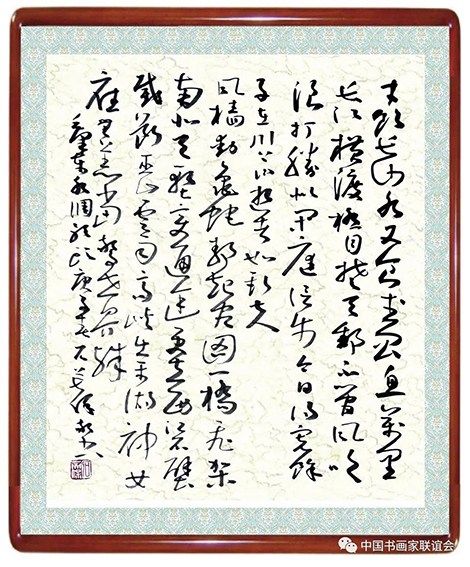 才饮长沙水又食武昌鱼萬里
长江横渡极目楚天舒不管风吹
浪打胜似闲庭信步今日得宽馀
子在川上曰逝者如斯夫
风樯动龟蛇静起宏图一桥飞架
南北天堑变通途更立西江石壁
截断巫山云雨高峡出平湖神女
应无恙当惊世界殊
毛泽东水调歌头庚子
中国书画家联谊会